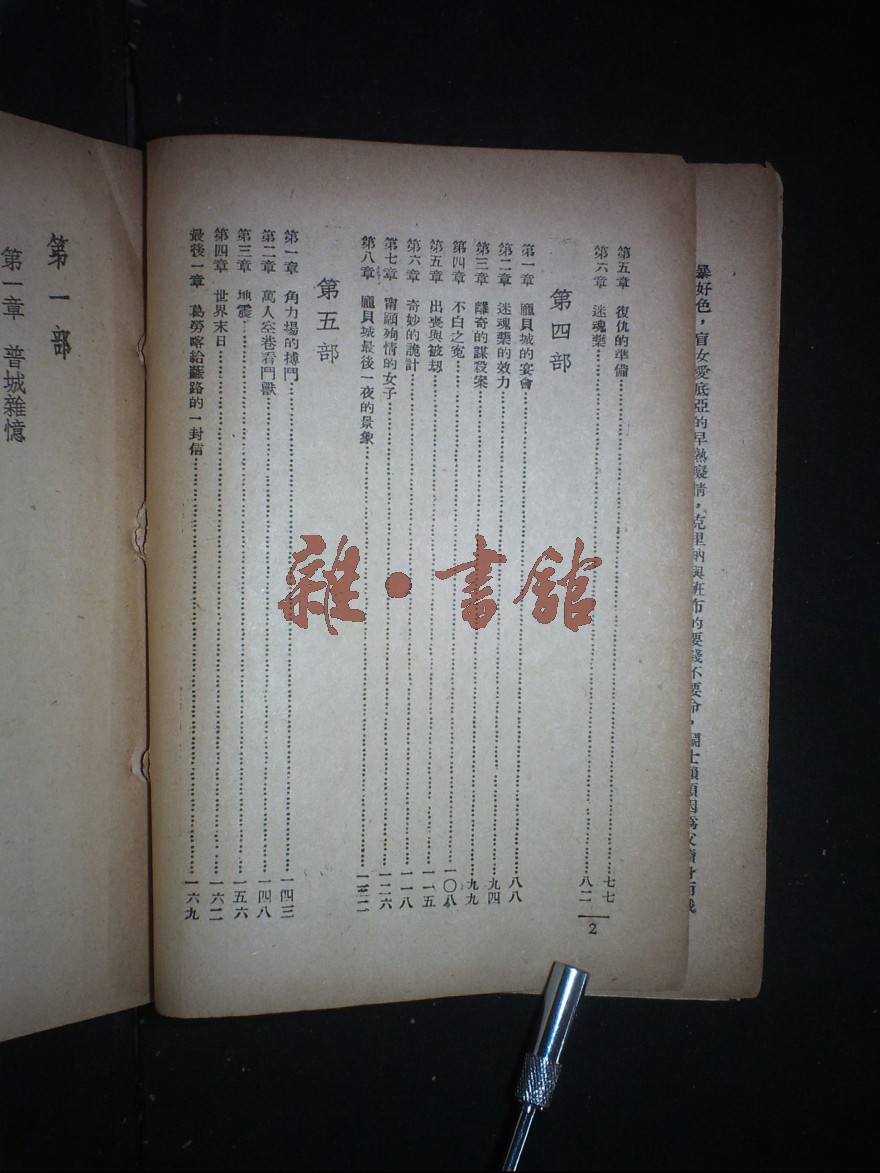 暴好色，盲女愛底亞的早熟癡情，克里
的要錢不要命，
第五章 復仇的準備……七七
第六章 迷魂藥……八二
第四部
第一章 龐貝城的宴會……八八
第二章 迷魂藥的效力……九四
第三章 離奇的謀殺案……九九
第四章 不白之冤……一〇八
第五章 出喪與被刼……一一五
第六章 奇妙的詭計……一一八
第七章 甯願殉情的女子……一二六
第八章 龐貝城最後一夜的景象……一三二
第五部
第一章 角力場的搏鬥……一四三
第二章 萬人空巷看鬥獸……一四八
第三章 地震……一五六
第四章 世界末日……一六二
最後一章 葛勞喀給薩路的一封信……一六九
2
第一部
第一章 普城雜憶
雜·書館